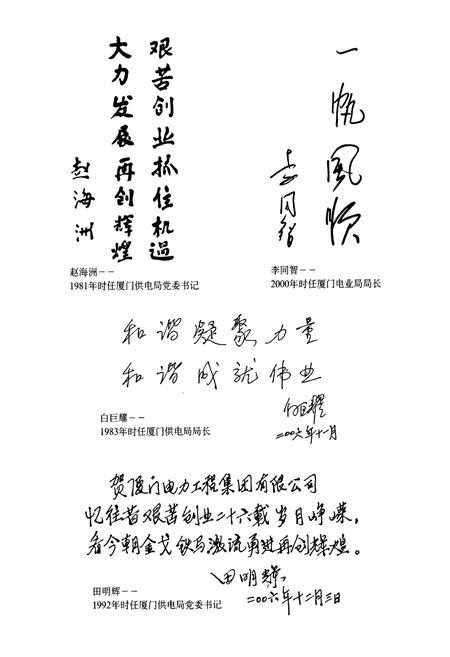 艰苦创业抓住机遇
大力发展再创辉煌
赵海洲
赵海洲——
1981年时任厦门供电局党委书记
一帆風顺
李同智
李同智——
2000年时任厦门电业局局长
和谐凝聚力量
和谐成就伟业
白巨耀
二〇〇六年十一月
白巨耀——
1983年时任厦门供电局局长
贺厦门电力工程集团有限公司
忆往昔艰苦创业二十六载岁月峥嵘，
看今朝金戈铁马激流勇进再创辉煌。
田明辉
二〇〇六年十二月三日
田明辉——
1992年时任厦门供电局党委书记